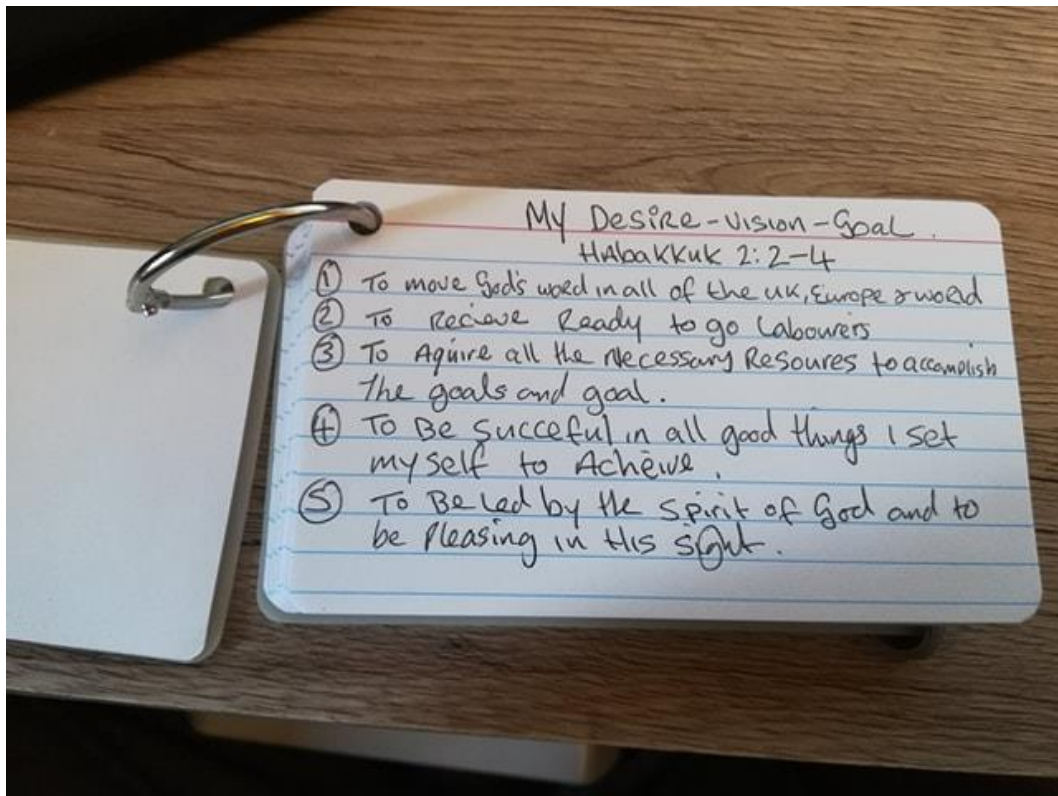 My Desire-Vision-Goal.
HAbakkuk 2:2-4
① To move God's word in all of the UK, Europe & world
② To Recieve Ready to go Labourers
③ To Aquire all the Necessary Resoures to accomplish
the goals and goal.
④ To Be Succeful in all good things I set
myself to Acheive.
⑤ To Be Led by the Spirit of God and to
be Pleasing in His sight.